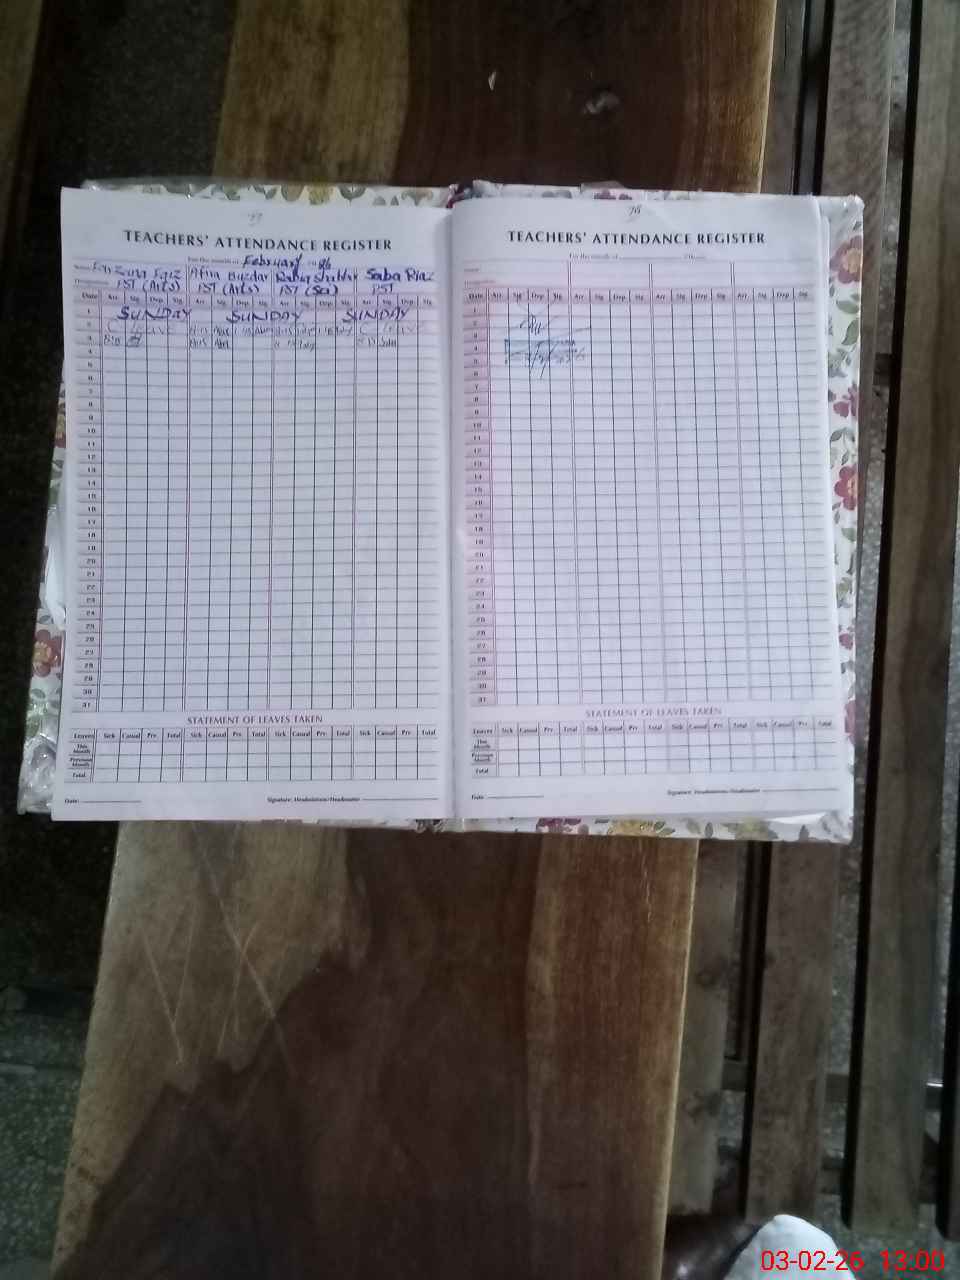 77
TEACHERS' ATTENDANCE REGISTER
For the month of February 26
Name Farzana Faiz Afira Buzdar Rabia Shabbir Saba Riaz
Designation PST (Arts) PST (Arts) PST (Sci) PST
Date Arr Sig Dep Sig Arr Sig Dep Sig Arr Sig Dep Sig Arr Sig Dep Sig
1 SUNDAY SUNDAY SUNDAY
2 C Leave C Leave
3
4
5
6
7
8
9
10
11
12
13
14
15
16
17
18
19
20
21
22
23
24
25
26
27
28
29
30
31
STATEMENT OF LEAVES TAKEN
Leaves Sick Casual Prv Total Sick Casual Prv Total Sick Casual Prv Total Sick Casual Prv Total
This Month
Previous Month
Total
Date: Signature: Headmistress/Headmaster
78
TEACHERS' ATTENDANCE REGISTER
For the month of
Name
Designation
Date Arr Sig Dep Sig Arr Sig Dep Sig Arr Sig Dep Sig Arr Sig Dep Sig
1
2
3
4
5
6
7
8
9
10
11
12
13
14
15
16
17
18
19
20
21
22
23
24
25
26
27
28
29
30
31
STATEMENT OF LEAVES TAKEN
Leaves Sick Casual Prv Total Sick Casual Prv Total Sick Casual Prv Total Sick Casual Prv Total
This Month
Previous Month
Total
Date Signature: Headmistress/Headmaster
03-02-26 13:00